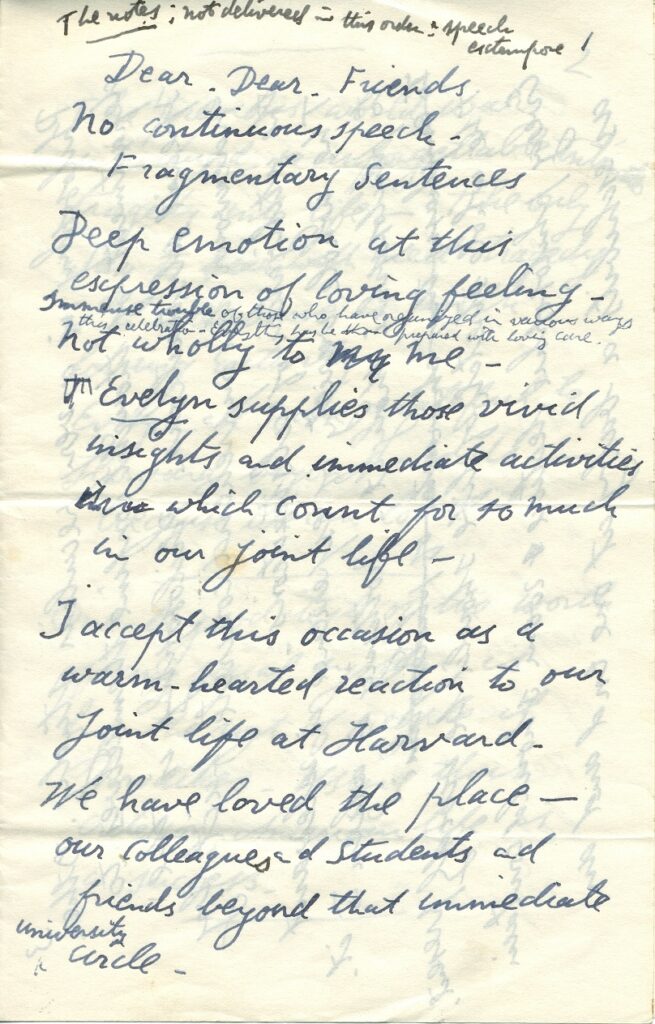 The notes; not delivered in this order: speech
extempore!
Dear - Dear - Friends
No continuous speech -
Fragmentary Sentences
Deep emotion at this
expression of loving feeling -
Immense trouble of those who have organized in various ways
this celebration - Everything has been prepared with loving care.
Not wholly to me -
Evelyn supplies those vivid
insights and immediate activities
which count for so much
in our joint life -
I accept this occasion as a
warm-hearted reaction to our
joint life at Harvard -
We have loved the place —
our colleagues and students and
friends beyond that immediate
university
circle -